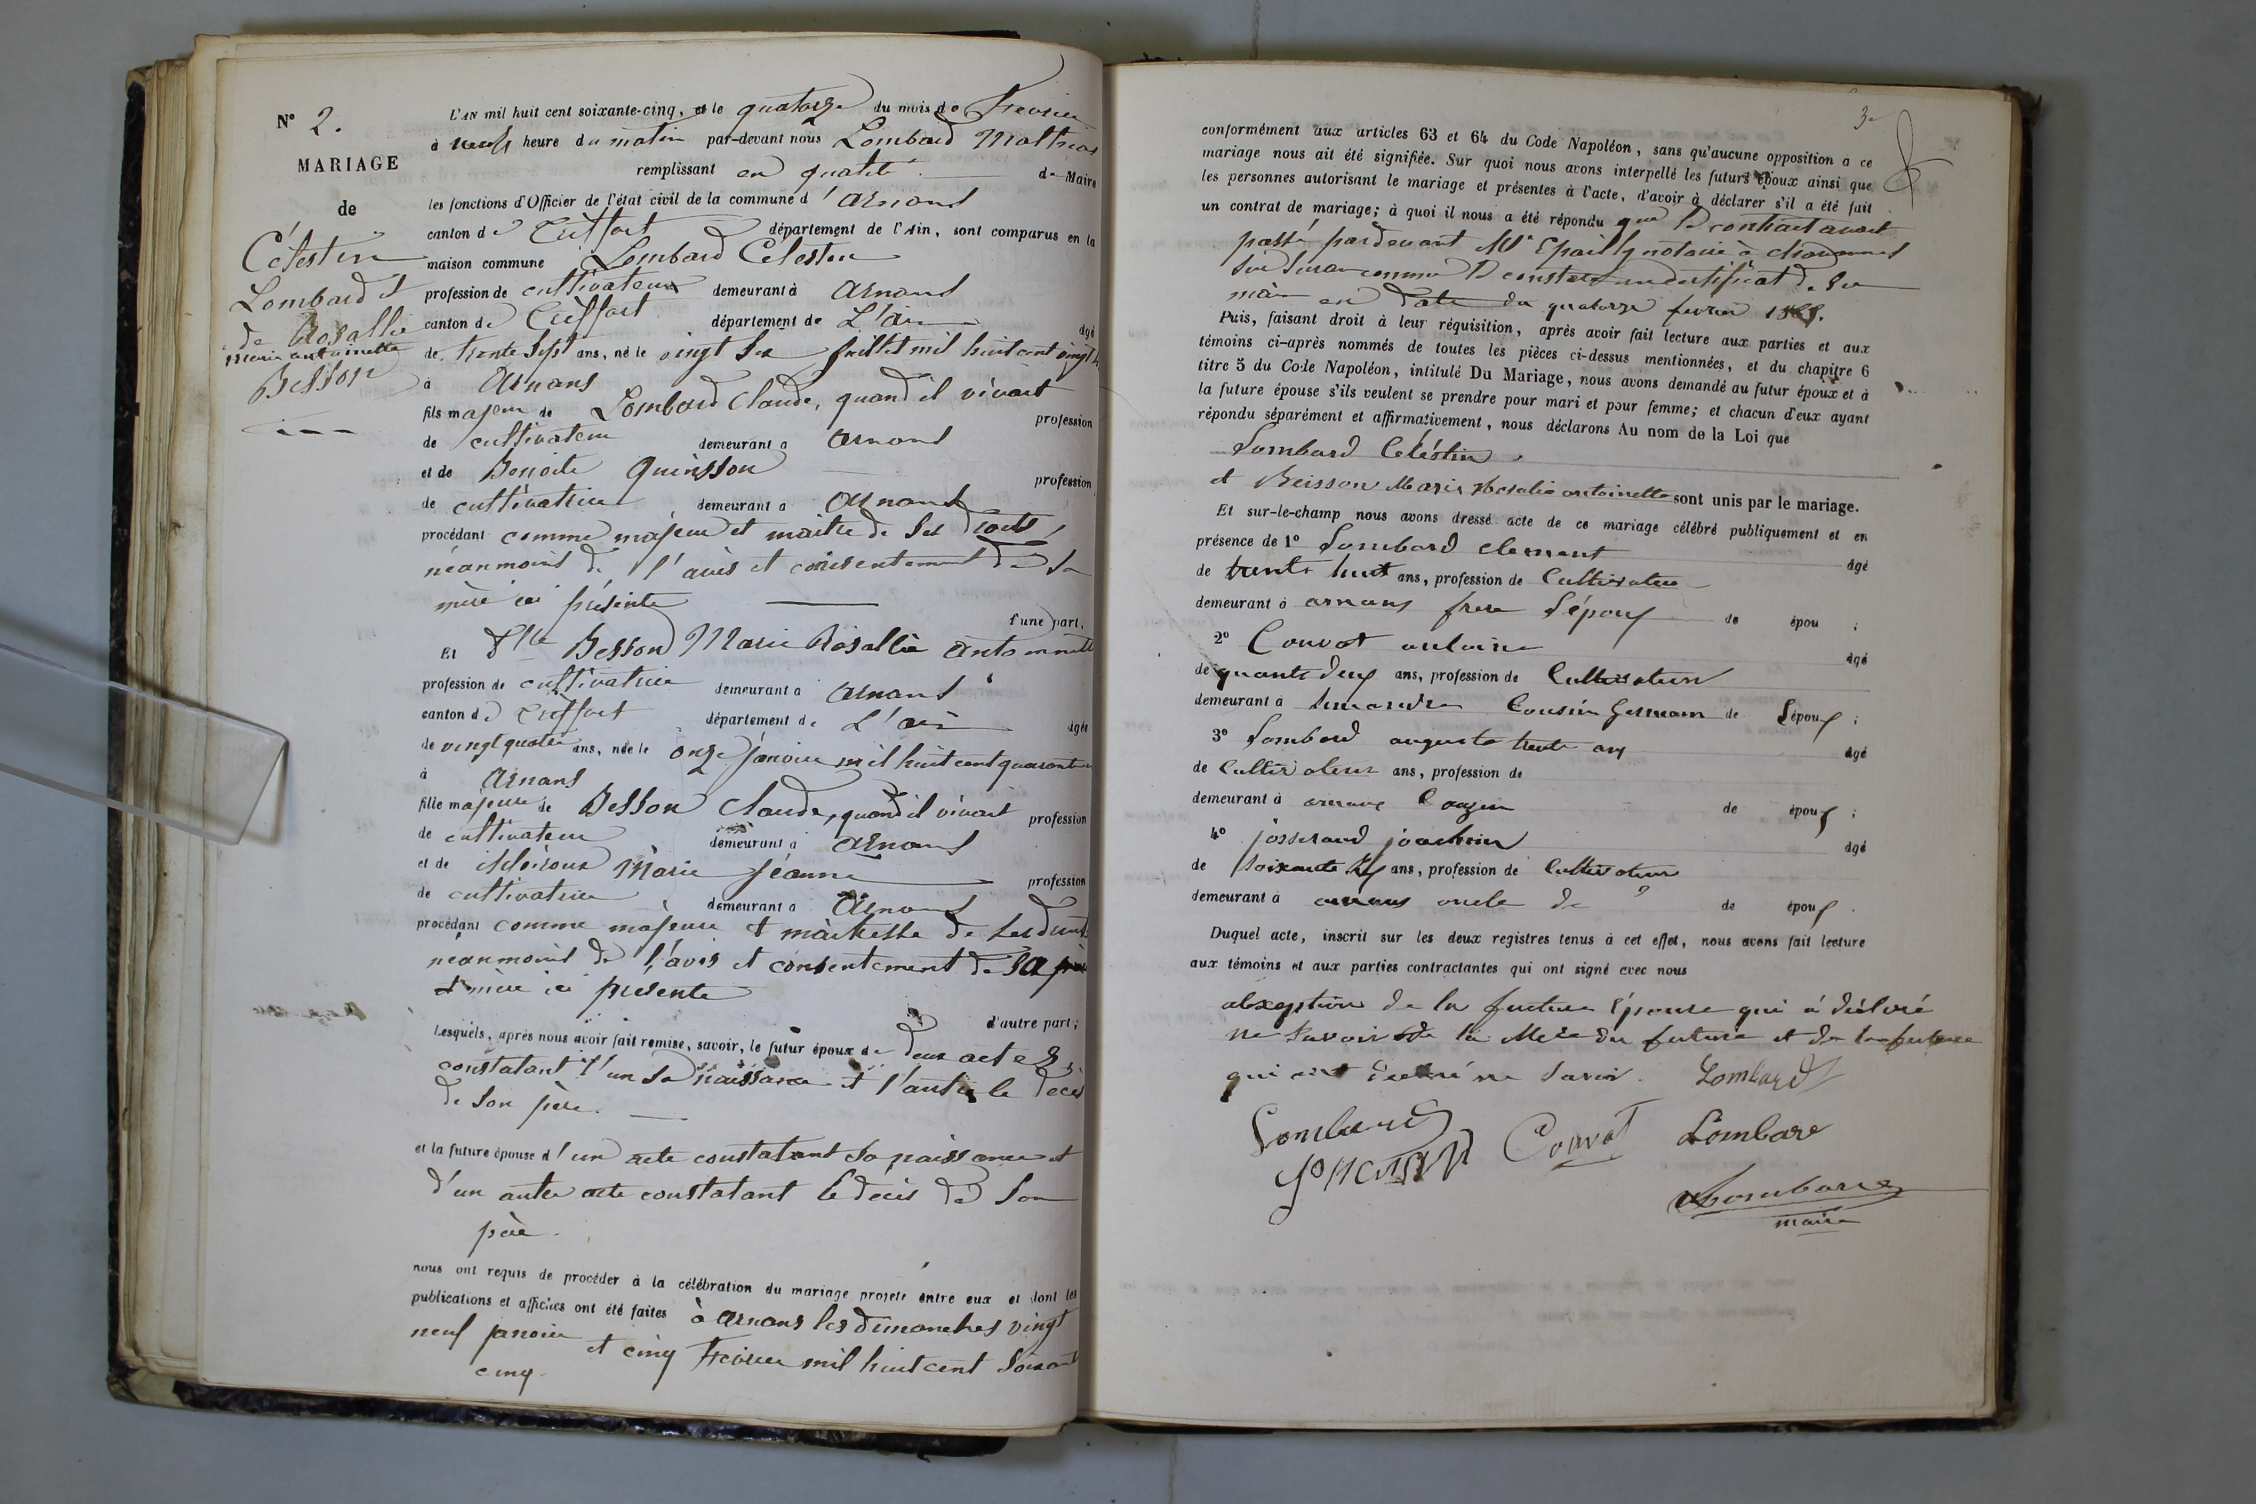 N° 2.
MARIAGE
de
Célestin
Lombard et
de Rosallie
Marie antoinette
Besson
L'AN mil huit cent soixante-cinq, et le quatorze du mois de Fevrier
à neuf heure du matin par-devant nous Lombard Mathias
remplissant en qualité de Maire
les fonctions d'Officier de l'état civil de la commune d'Arnans
canton de Treffort département de l'Ain, sont comparus en la
maison commune Lombard Célestin
profession de cultivateur demeurant à Arnans
canton de Treffort département de L'Ain âgé
de trente sept ans, né le vingt six juillet mil huit cent vingt
à Arnans
fils majeur de Lombard Claude, quand il vivait profession
de cultivateur demeurant à Arnans
et de Benoite Quinsson profession
de cultivatrice demeurant à Arnans
procédant comme majeur et maitre de ses droits,
néanmoins de l'avis et consentement de sa
mère ici présente
d'une part,
Et Dlle Besson Marie Rosallie Antoinette
profession de cultivatrice demeurant à Arnans
canton de Treffort département de L'ain âgée
de vingt quatre ans, née le onze janvier mil huit cent quarante
à Arnans
fille majeure de Besson Claude, quand il vivait profession
de cultivateur demeurant à Arnans
et de Marie Jéanne profession
de cultivatrice demeurant à Arnans
procédant comme majeure et maîtresse de ses droits
néanmoins de l'avis et consentement de sa
mère ici présente
d'autre part;
Lesquels, après nous avoir fait remise, savoir, le futur époux de deux actes,
constatant l'un sa naissance et l'autre le décès
de son père.
et la future épouse d'un acte constatant sa naissance et
d'un autre acte constatant le décès de son
père.
nous ont requis de procéder à la célébration du mariage projeté entre eux et dont les
publications et affiches ont été faites à Arnans les dimanches vingt
neuf janvier et cinq Fevrier mil huit cent soixante
cinq.
3
conformément aux articles 63 et 64 du Code Napoléon, sans qu'aucune opposition à ce
mariage nous ait été signifiée. Sur quoi nous avons interpellé les futurs époux ainsi que
les personnes autorisant le mariage et présentes à l'acte, d'avoir à déclarer s'il a été fait
un contrat de mariage; à quoi il nous a été répondu que le contrait avait
passé pardevant Me Epailly notaire à
sur Suran comme le constate un certificat de sa
main en date du quatorze fevrier 1865.
Puis, faisant droit à leur réquisition, après avoir fait lecture aux parties et aux
témoins ci-après nommés de toutes les pièces ci-dessus mentionnées, et du chapitre 6
titre 5 du Code Napoléon, intitulé Du Mariage, nous avons demandé au futur époux et à
la future épouse s'ils veulent se prendre pour mari et pour femme; et chacun d'eux ayant
répondu séparément et affirmativement, nous déclarons Au nom de la Loi que
Lombard Célestin
et Beisson Marie Rosalie antoinette sont unis par le mariage.
Et sur-le-champ nous avons dressé acte de ce mariage célébré publiquement et en
présence de 1° Lombard clement âgé
de trente huit ans, profession de Cultivateur
demeurant à arnans frere l'époux de épou ;
2° Convot antoine âgé
de quante deux ans, profession de Cultivateur
demeurant à Simandre Cousin Germain de l'époux ;
3° Lombard auguste trente ans âgé
de Cultivateur ans, profession de
demeurant à arnans Cousin de époux ;
4° josserand joachim âgé
de soixante six ans, profession de Cultivateur
demeurant à arnans oncle de de époux.
Duquel acte, inscrit sur les deux registres tenus à cet effet, nous avons fait lecture
aux témoins et aux parties contractantes qui ont signé avec nous
alexeption de la future épouse qui à déclaré
ne savoir de la Mere du future et de la future
qui ont declaré ne savoir. Lombard
Lombard Convot Lombard
Lombard
maire